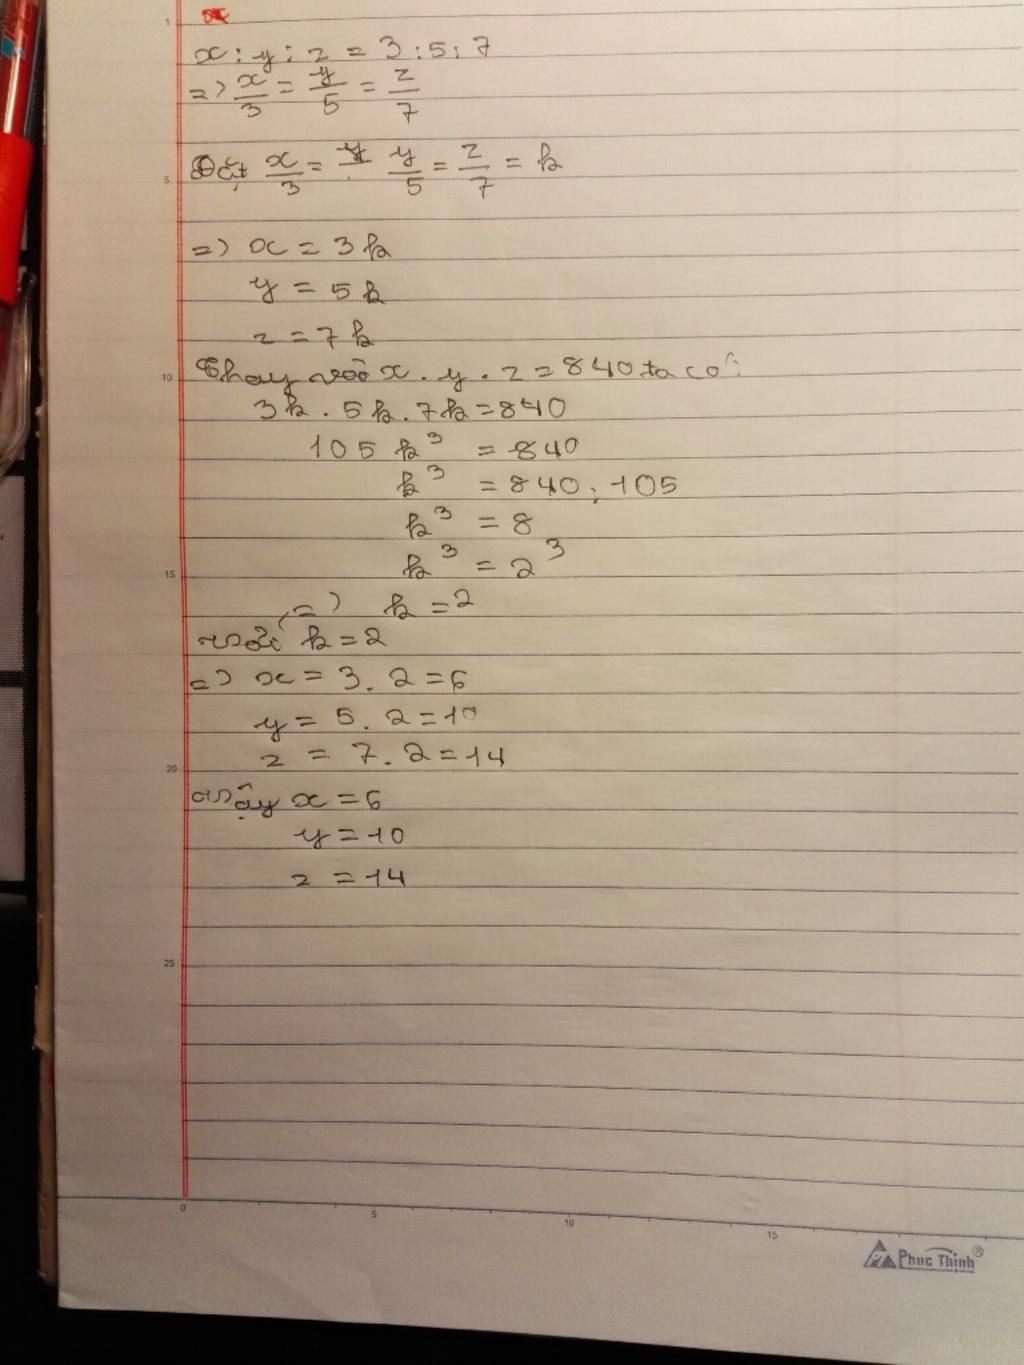 1
x : y : z = 3 : 5 : 7
=> x/3 = y/5 = z/7
5
Đặt x/3 = y/5 = z/7 = k
=> x = 3k
y = 5k
z = 7k
10
Thay vào x . y . z = 840 ta có:
3k . 5k . 7k = 840
105 k³ = 840
k³ = 840 : 105
k³ = 8
15
k³ = 2³
=> k = 2
với k = 2
=> x = 3 . 2 = 6
y = 5 . 2 = 10
20
z = 7 . 2 = 14
Vậy x = 6
y = 10
z = 14
25
0 5 10 15
Phuc Thinh®